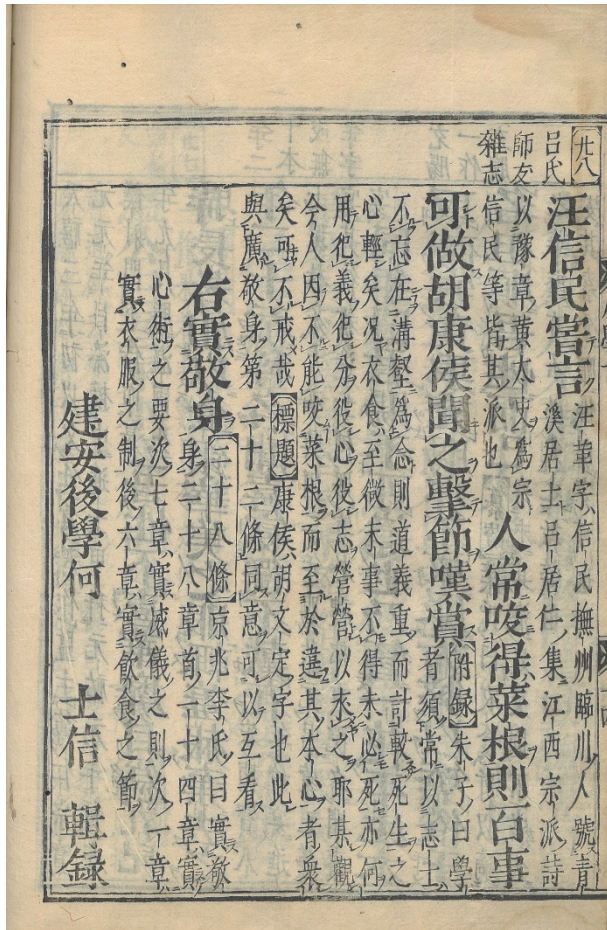 廿八
呂氏
師友
雜志
汪信民嘗言
汪革字信民撫州臨川人號青
溪居士呂居仁集江西宗派詩
以豫章黃太史爲宗
信民等皆其派也
人常咬得菜根則百事
可做胡康侯聞之擊節嘆賞
附録朱子曰學
者須常以志士
不忘在溝壑爲念則道義重而計較死生之
心輕矣況衣食至微末事不得未必死亦何
用犯義犯分役心役志營營以求之耶某觀
今人因不能咬菜根而至於違其本心者衆
矣可不戒哉標題康侯胡文定字也此
與廣敬身第二十二條同意可以互看
右實敬身
二十八條京兆李氏曰實敬
身二十八章首一十四章實
心術之要次七章實威儀之則次一章
實衣服之制後六章實飲食之節
建安後學何 士信 輯録